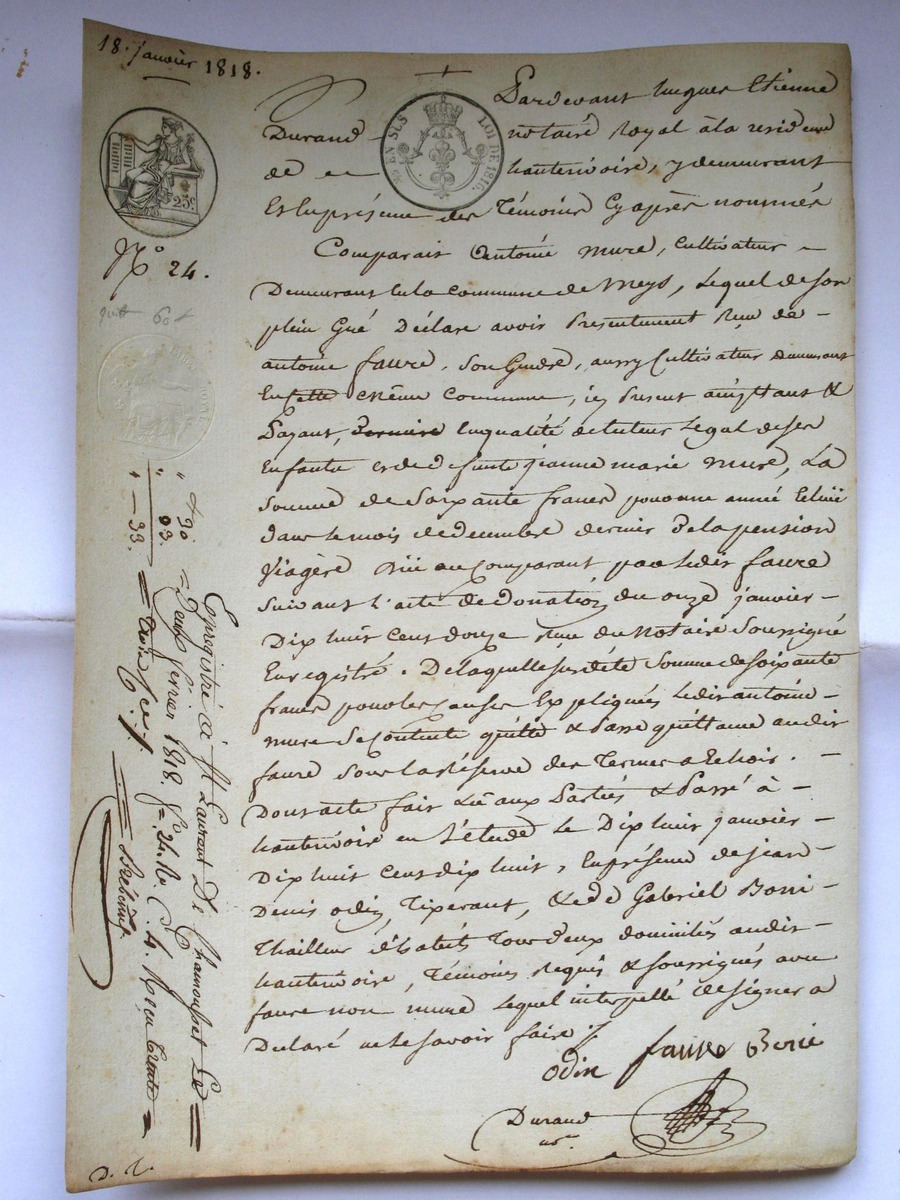 18. janvier 1818.
Pardevant hugues Etienne
Durand notaire Royal à la residence
de hauterivoire, y demeurant
Et En présence des Témoins Cy après nommés
Comparait Antoine mure, Cultivateur
Demeurant En la commune de meys, Lequel de son
plein Gré Déclare avoir Presentement Reçu de
antoine faure, Son Gendre, aussy Cultivateur demeurant
En même Commune, icy Present acceptant &
Payant, Enqualité de tuteur Legal de ses
Enfants et de defunte jeanne marie mure, La
Somme de Soixante francs pour une année Echue
dans le mois de decembre dernier De la pension
Viagère Due au Comparant par ledit faure
Suivant l'acte de donation du onze janvier
Dix huit Cent douze Reçu du Notaire Soussigné
Enregistré. De laquelle susdite Somme de Soixante
francs pour les causes Expliquées ledit antoine
mure Se Contente quitte & Passe quittance audit
faure Sous la Réserve des Termes a Echoir.
Dont acte fait Lu aux Parties & Passé à
hauterivoire en l'étude le Dix huit janvier
Dix huit Cent dix huit, En présence de jean
Denis odin, Tixerant, & de Gabriel Borie
Thailleur d'habits Tous deux domiciliés audit
hauterivoire, Témoins Requis & soussignés avec
faure non mure Lequel interpellé de signer a
Declaré ne le savoir faire
odin faure Borie
Durand
nre
EN SUS
LOI DE 1816.
25c
No 24.
60
" 30
03.
" - 33.
Enregistré à St Laurent De Chamousset Le
février 1818. fo. 24. Ro. C. 4. Reçu trente
trois c.
D. T.